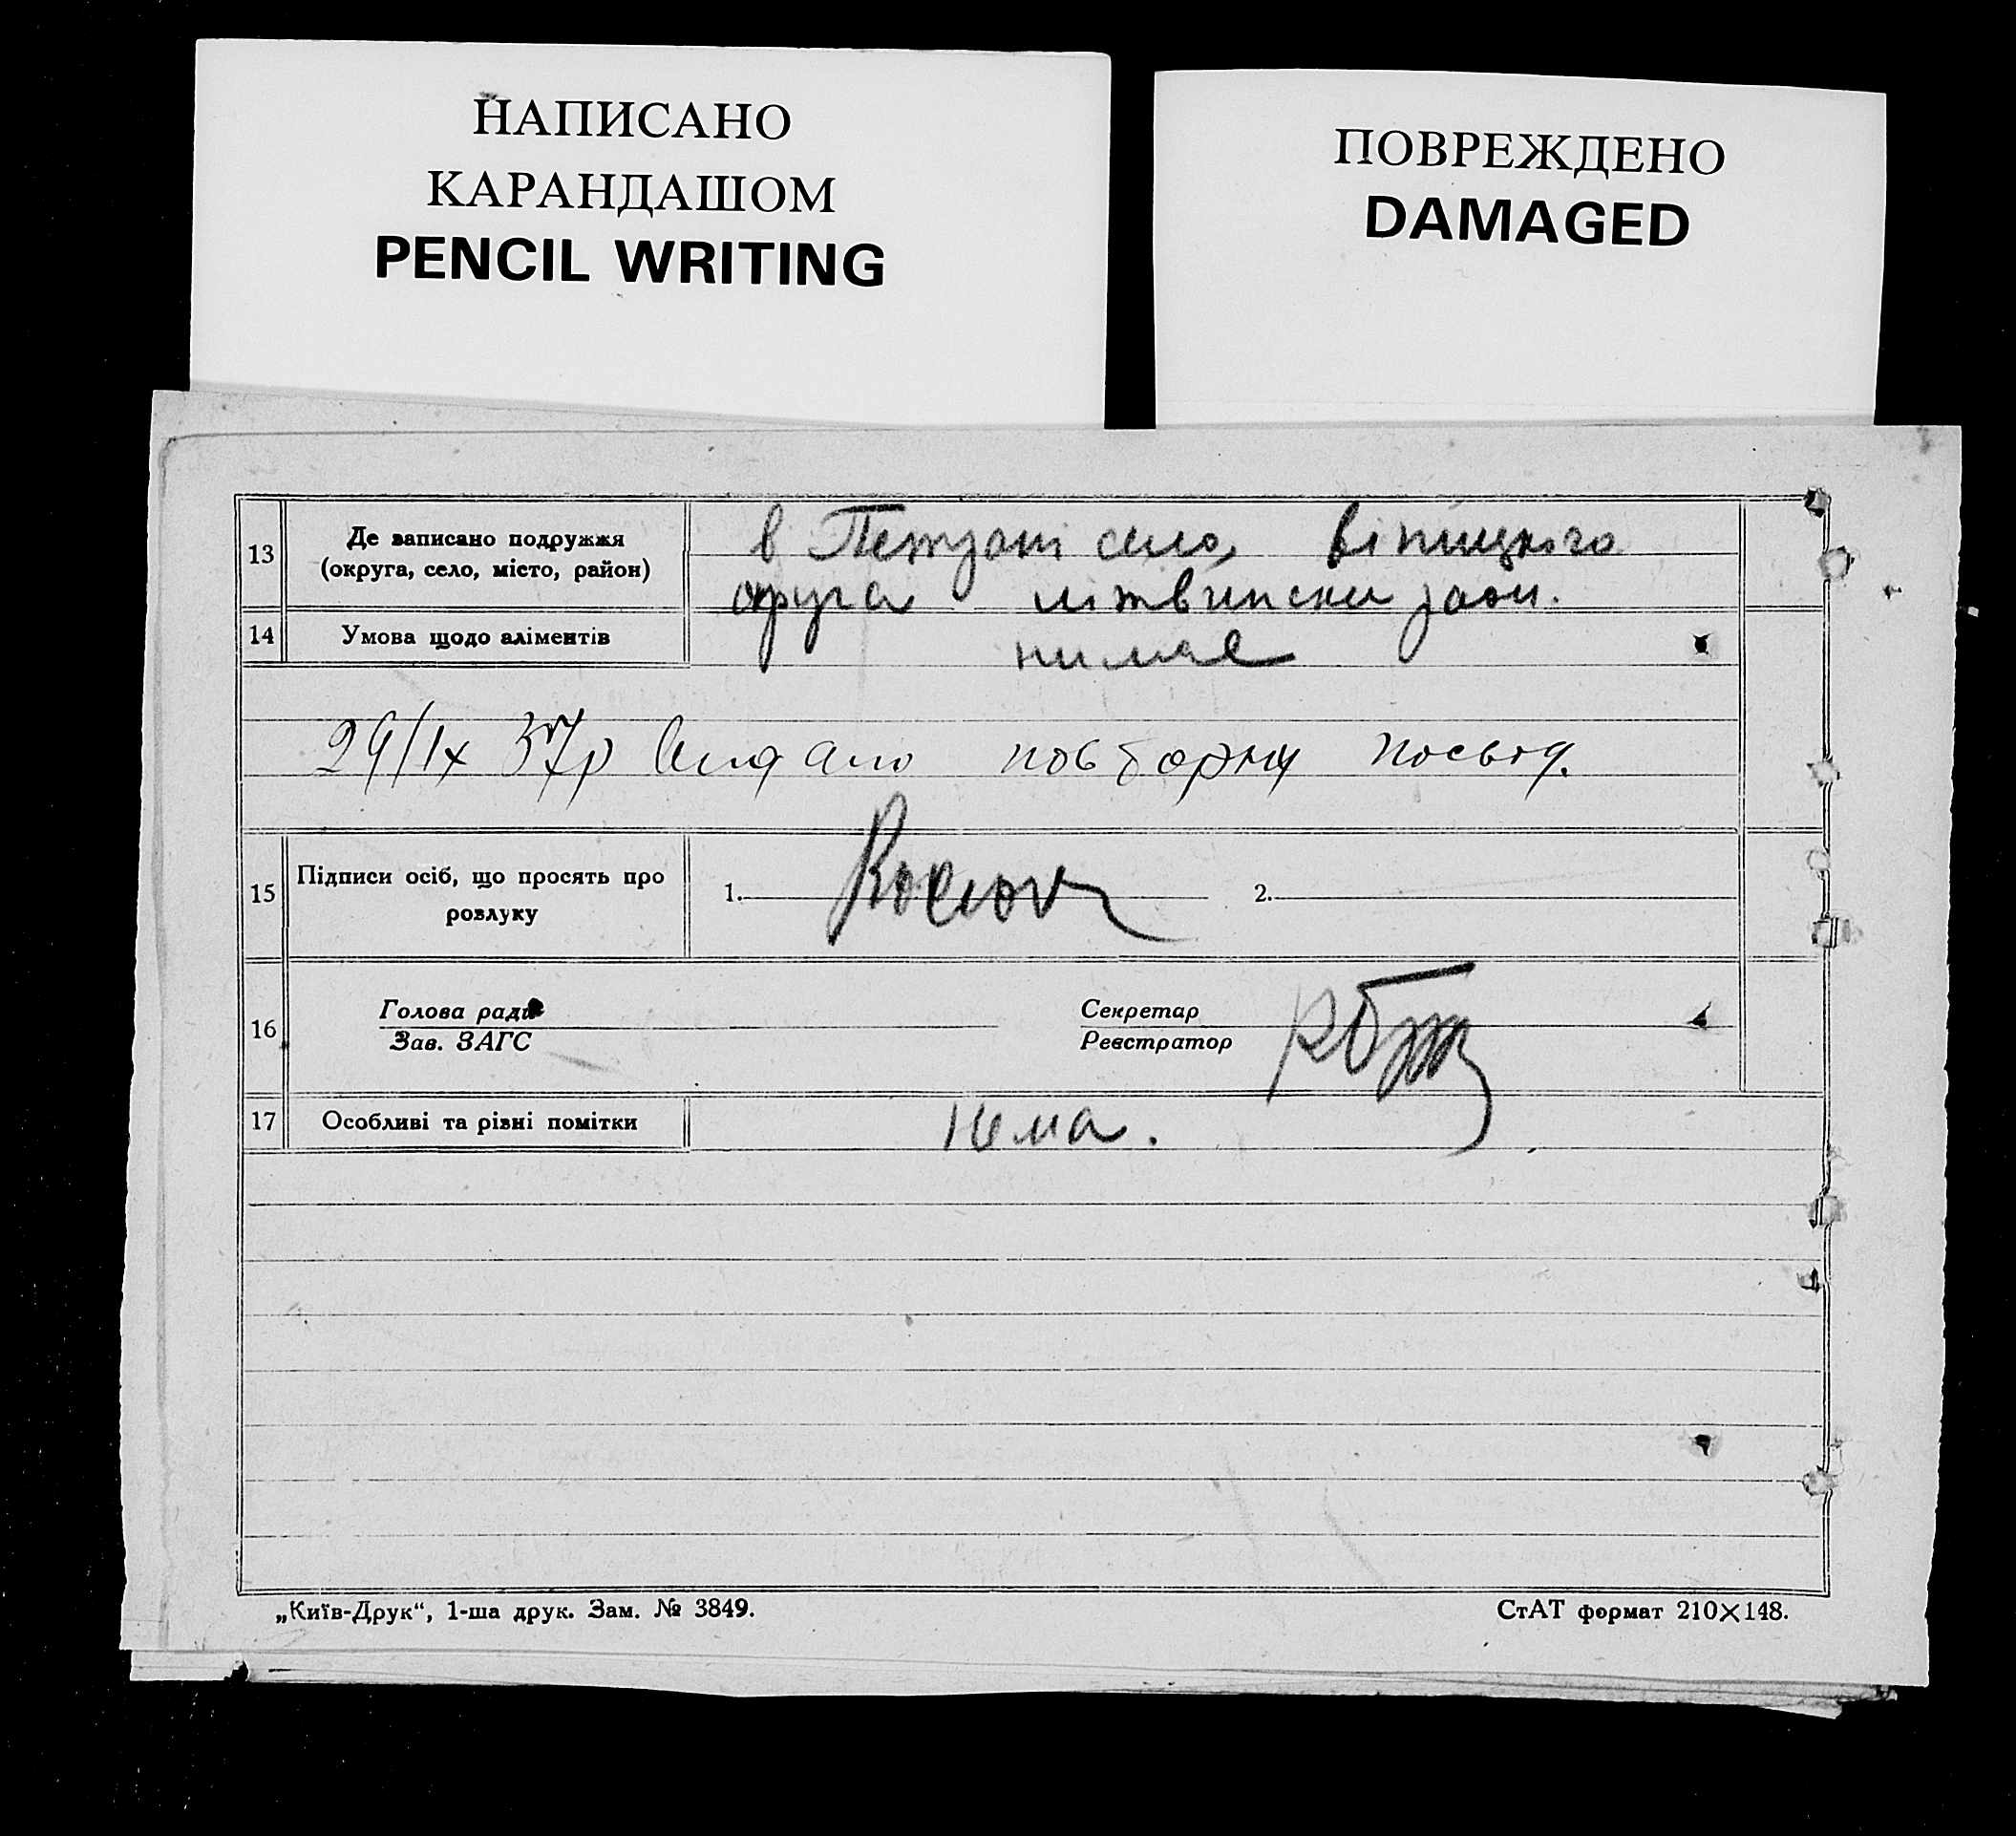 НАПИСАНО
КАРАНДАШОМ
PENCIL WRITING
ПОВРЕЖДЕНО
DAMAGED
13 Де записано подружжя
(округа, село, місто, район)
в село, вініцкого
округа
14 Умова щодо аліментів
нимає
29/IX 37р Видано повторну посвід.
15 Підписи осіб, що просять про
розлуку
1. 2.
16 Голова ради Секретар
Зав. ЗАГС Реєстратор
17 Особливі та різні помітки нема.
„Київ-Друк“, 1-ша друк. Зам. № 3849. СтАТ формат 210×148.